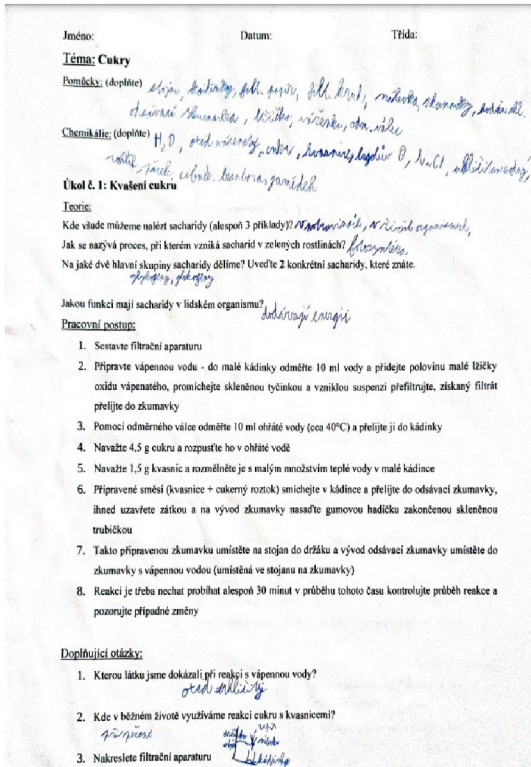 Jméno: Datum: Třída:
Téma: Cukry
Pomůcky: (doplňte) stojan, kádinky, filt. papír, filt. kruh, nálevka, zkumavky,
odsávací zkumavka, lžička, odm. válec
Chemikálie: (doplňte) H2O, oxid vápenatý, cukr, kvasnice, NaCl,
cibule, brambora
Úkol č. 1: Kvašení cukru
Teorie:
Kde všude můžeme nalézt sacharidy (alespoň 3 příklady)?
Jak se nazývá proces, při kterém vzniká sacharid v zelených rostlinách? fotosyntéza
Na jaké dvě hlavní skupiny sacharidy dělíme? Uveďte 2 konkrétní sacharidy, které znáte.
Jakou funkci mají sacharidy v lidském organismu? dodávají energii
Pracovní postup:
1. Sestavte filtrační aparaturu
2. Připravte vápennou vodu - do malé kádinky odměřte 10 ml vody a přidejte polovinu malé lžičky
oxidu vápenatého, promíchejte skleněnou tyčinkou a vzniklou suspenzi přefiltrujte, získaný filtrát
přelijte do zkumavky
3. Pomocí odměrného válce odměřte 10 ml ohřáté vody (cca 40°C) a přelijte ji do kádinky
4. Navažte 4,5 g cukru a rozpusťte ho v ohřáté vodě
5. Navažte 1,5 g kvasnic a rozmělněte je s malým množstvím teplé vody v malé kádince
6. Připravené směsi (kvasnice + cukerný roztok) smíchejte v kádince a přelijte do odsávací zkumavky,
ihned uzavřete zátkou a na vývod zkumavky nasaďte gumovou hadičku zakončenou skleněnou
trubičkou
7. Takto připravenou zkumavku umístěte na stojan do držáku a vývod odsávací zkumavky umístěte do
zkumavky s vápennou vodou (umístěná ve stojanu na zkumavky)
8. Reakci je třeba nechat probíhat alespoň 30 minut v průběhu tohoto času kontrolujte průběh reakce a
pozorujte případné změny
Doplňující otázky:
1. Kterou látku jsme dokázali při reakci s vápennou vody?
oxid uhličitý
2. Kde v běžném životě využíváme reakci cukru s kvasnicemi?
při pečení
3. Nakreslete filtrační aparaturu
kádinka